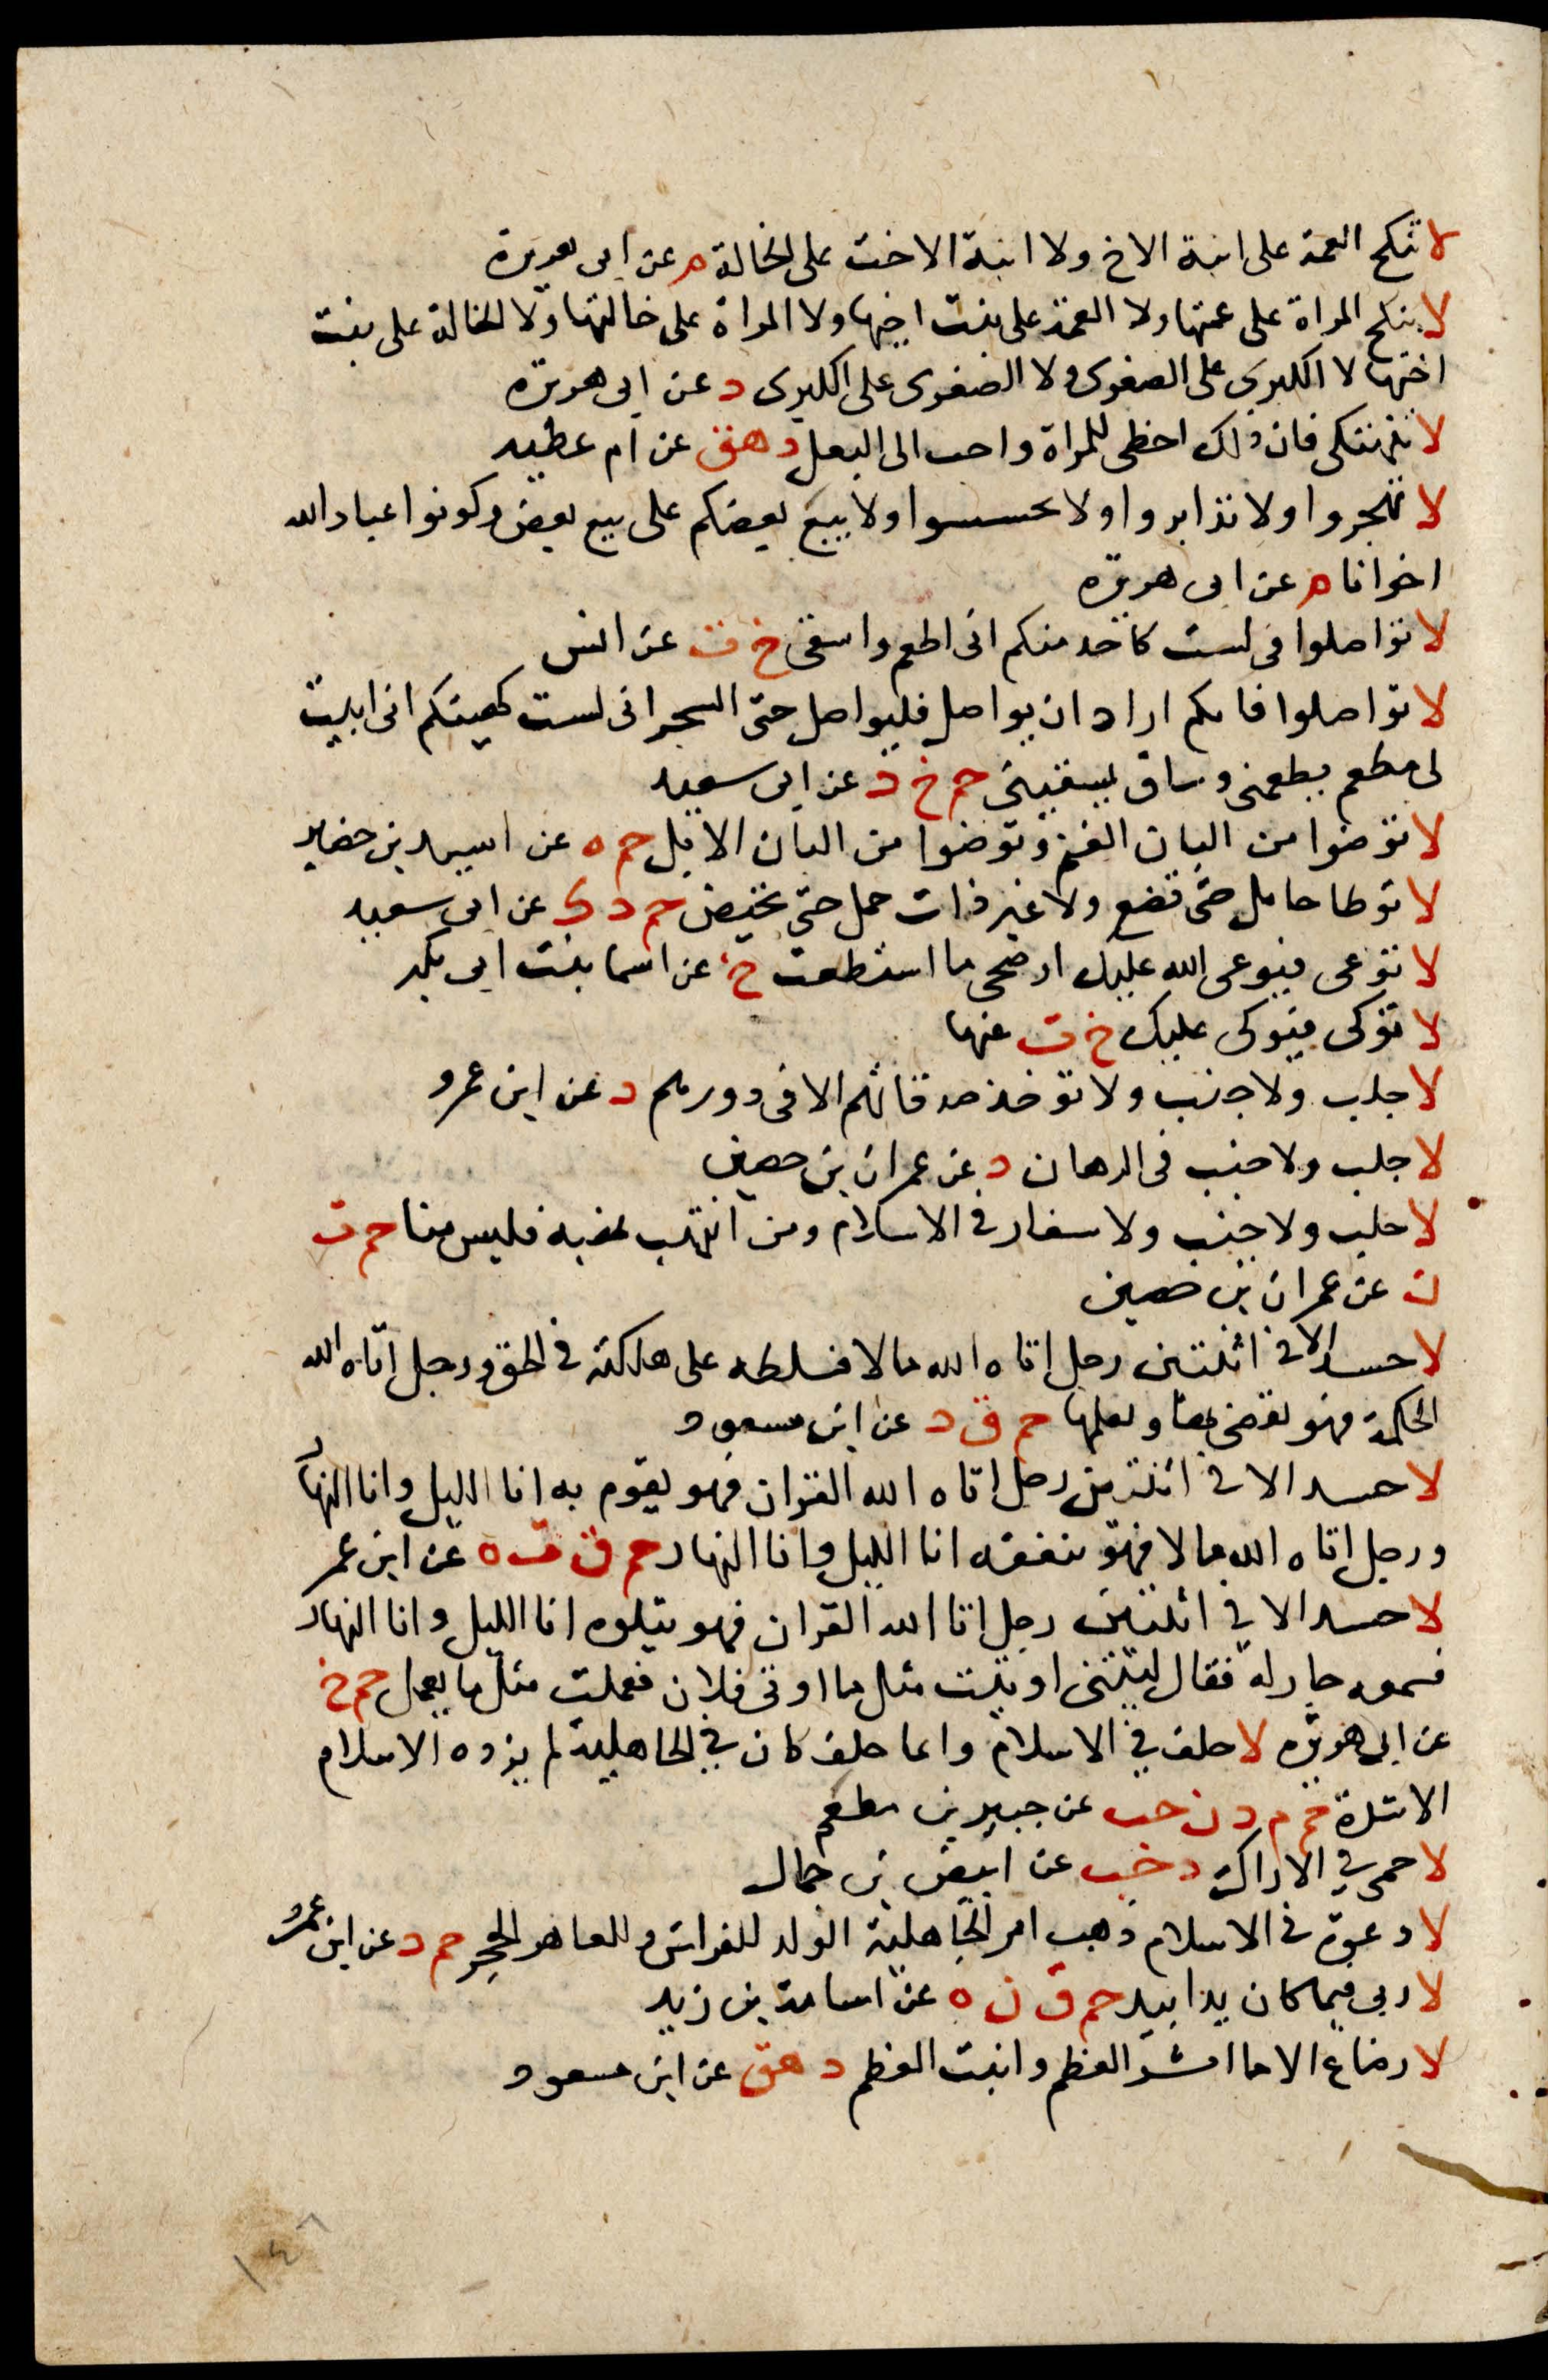 لا تنكح العمة على ابنة الاخ ولا ابنة الاخت على الخالة م عن ابى هريرة
لا ينكح المراة على عمتها ولا العمة على بنت اخيها ولا المراة على خالتها ولا الخالة على بنت
اختها لا الكبرى على الصغرى ولا الصغرى على الكبرى د عن ابى هريرة
لا تنهتكى فان ذلك احظى للمراة واحب الى البعل د هق عن ام عطيه
لا تهجروا ولا تدابروا ولا تحسسوا ولا يبيع بعضكم على بيع بعض وكونوا عباد الله
اخوانا م عن ابى هريره
لا تواصلوا فى لست كاحد منكم انى اطعم واسقى خ ت عن انس
لا تواصلوا فايكم اراد ان يواصل فليواصل حتى السحر انى لست كهيئتكم انى ابيت
لى مطعم يطعمنى وساق يسقينى حم خ د عن ابى سعيد
لا توضوا من البان الغنم وتوضوا من البان الابل حم ه عن اسيد بن حضير
لا توطا حامل حتى تضع ولا غير ذات حمل حتى تحيض حم د ك عن ابى سعيد
لا توعى فيوعى الله عليك ارضخى ما استطعت خ عن اسما بنت ابى بكر
لا توكى فيوكى عليك خ ت عنها
لا جلب ولا جنب ولا توخذ صدقاتهم الا فى دورهم د عن ابن عمرو
لا جلب ولا جنب فى الرهان د عن عمران بن حصين
لا جلب ولا جنب ولا شغار فى الاسلام ومن انتهب نهبه فليس منا حم ت
ن عن عمران بن حصين
لا حسد الا فى اثنتين رجل اتاه الله مالا فسلطه على هلكته فى الحق ورجل اتاه الله
الحكمة فهو يقضى بها ويعلمها حم ق د عن ابن مسعود
لا حسد الا فى اثنتين رجل اتاه الله القران فهو يقوم به انا الليل وانا النهار
ورجل اتاه الله مالا فهو ينفقه انا الليل وانا النهار حم ق ت ه عن ابن عمر
لا حسد الا فى اثنتين رجل اتا الله القران فهو يتلوه انا الليل وانا النهار
فسمعه جار له فقال ليتنى اوتيت مثل ما اوتى فلان فعملت مثل ما يعمل حم خ
عن ابى هريره لا حلف فى الاسلام وايما حلف كان فى الجاهلية لم يزده الاسلام
الا شدة حم م د ن حب عن جبير بن مطعم
لا حمى فى الاراك د حب عن ابيض بن حمال
لا دعوة فى الاسلام ذهب امر الجاهلية الولد للفراش وللعاهر الحجر حم د عن ابن عمرو
لا ربى فيما كان يدا بيد حم ق ن ه عن اسامة بن زيد
لا رضاع الا ما انشز العظم وانبت العظم د هق عن ابن مسعود
١٤٨